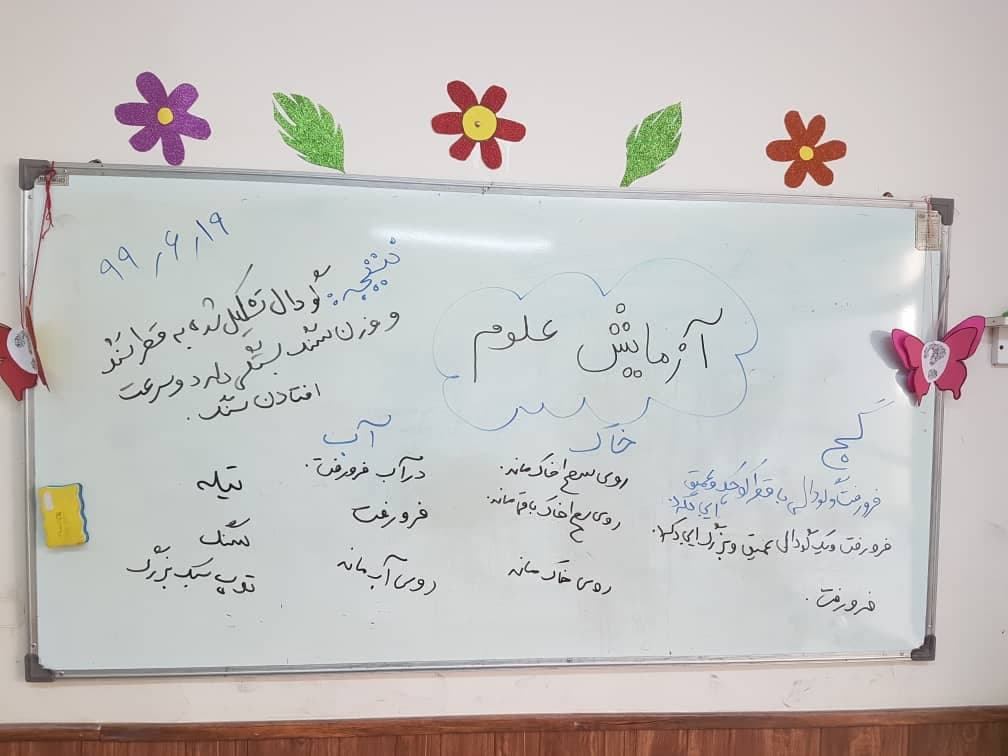 ۹۹٫۶٫۱۹
نتیجه:
گودال تشکیل شده به قطر سنگ
و وزن سنگ بستگی دارد و سرعت
افتادن سنگ.
آزمایش علوم
گچ
خاک
آب
فرو رفت و گودالی با قطر کوچک و عمیق
ایجاد کرد.
روی سطح خاک ماند.
در آب فرو رفت.
تیله
فرو رفت و یک گودال عمیق و بزرگ ایجاد کرد.
روی سطح خاک باقی ماند.
فرو رفت
سنگ
فرو رفت.
روی خاک ماند
روی آب ماند
توپ سبک بزرگ